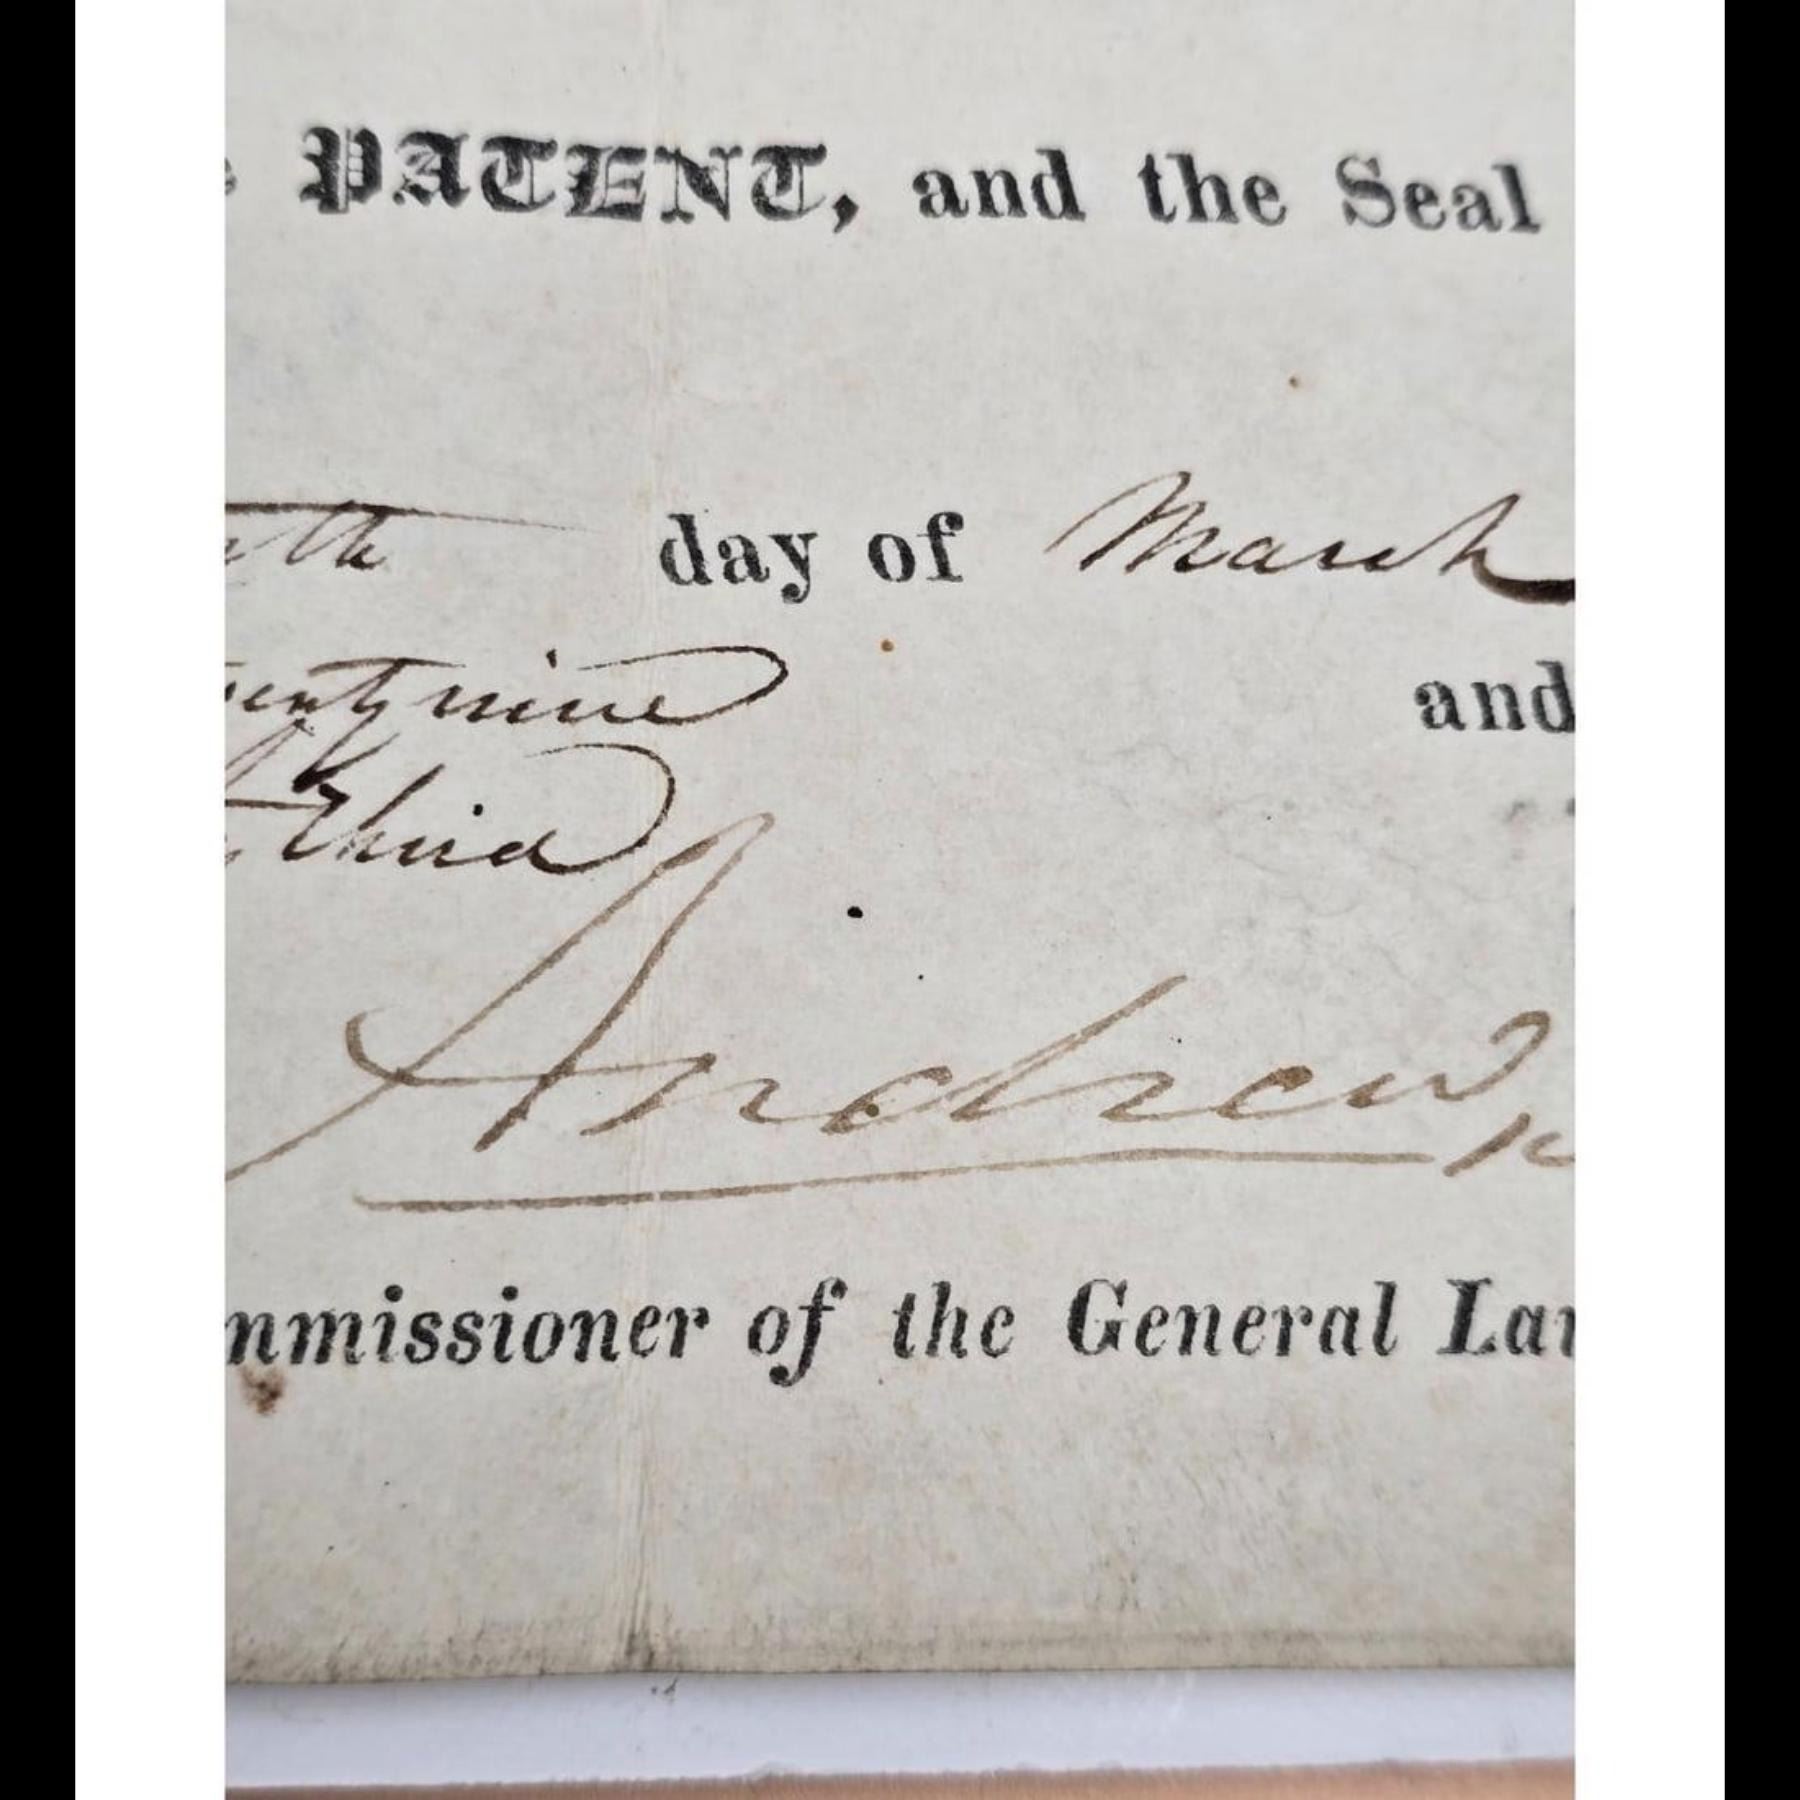 PATENT, and the Seal
th day of March
enty nine and
third
Andrew
mmissioner of the General Lan